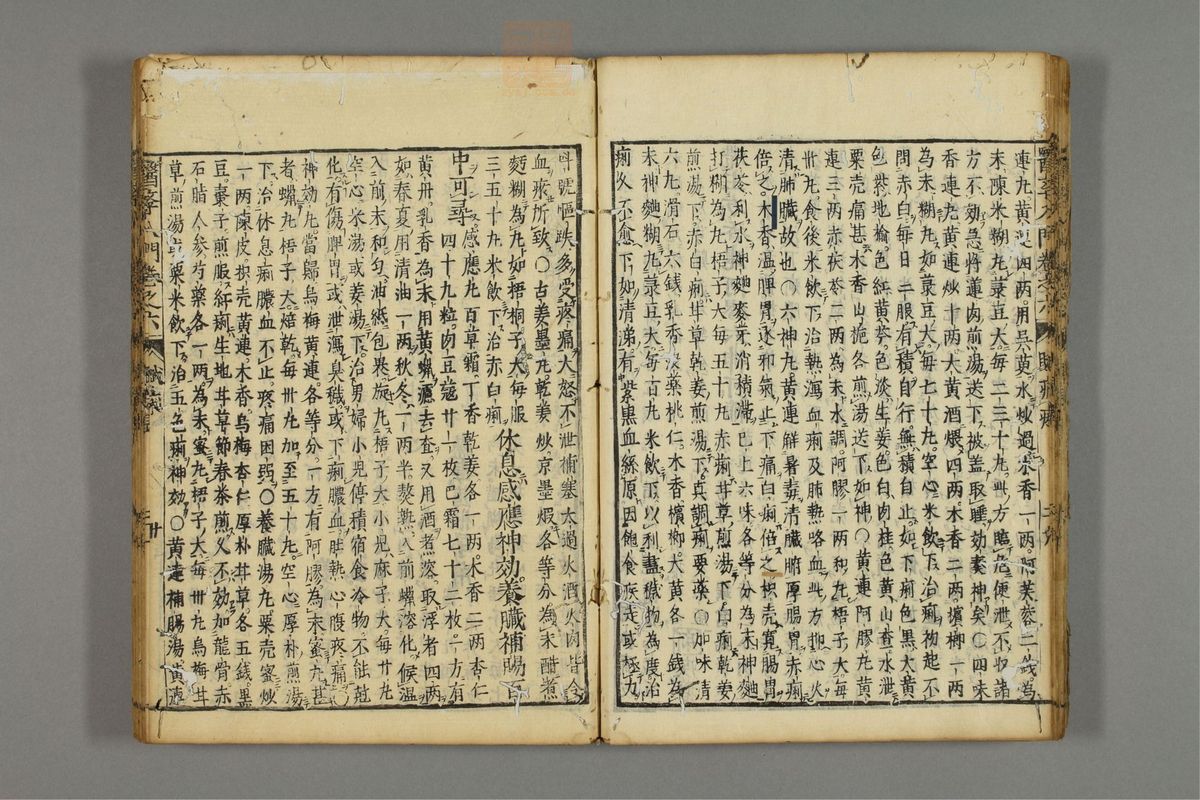 連丸黄連四两用吳茱水炒過木香一两阿芙蓉二錢為
末陳米糊丸菉豆大每二三十丸此方臨危便泄不收諸
方不効急將蓮肉煎湯送下被盖取睡効妻神矣〇四味
香連丸黄連炒十两大黄酒煨四两木香二两檳榔一两
為末糊丸如菉豆大每七十丸空心米飲下治痢初起不
問赤白每日二服有積自行無積自止如下痢色黑大黄
色紫地榆色紅黄芩色淡生姜色白肉桂色黄山査水泄
粟壳痛甚木香山栀各煎湯送下如神〇黄連阿膠丸黄
連三两赤茯苓二两為末水調阿膠一两為丸梧子大每
卅丸食後米飲下治熱瀉血痢及肺熱咯血此方抑心火
清肺臟故也〇六神丸黄連解暑毒清臟腑厚腸胃赤痢
倍之木香溫脾胃逐邪氣止下痛白痢倍之枳壳寬腸胃
茯苓利水神麯麥牙消積滯已上六味各等分為末神麯
打糊為丸梧子大每五十丸赤痢甘草煎湯下白痢乾姜
煎湯下赤白痢甘草乾姜煎湯下真調痢要藥〇加味清
六丸滑石六錢乳香沒藥桃仁木香檳榔大黄各一錢為
末神麯糊丸菉豆大每百丸米飲下以利盡穢物為度治
痢久不愈下如清涕有紫黑血絲原因飽食疾走或極力
叫號慪跌多受疼痛大怒不泄補塞太過火酒火肉皆令
血瘀所致〇古姜墨丸乾姜炒京墨煆各等分為末醋煮
麪糊為丸如梧桐子大每服
三五十丸米飲下治赤白痢 休息感應神効養臟補腸
中可尋 感應丸百草霜丁香乾姜各一两木香二两杏仁
四十九粒肉豆蔻廿一枚巴霜七十二枚一方有
黄丹乳香為末用黄蠟濾去査又用酒煮溶取浮者四两
如春夏用清油一两秋冬一两半熬熟入前蠟溶化候温
入前末和匀油紙包褁旋丸梧子大小児麻子大每廿九
空心米湯或姜湯下治男婦小児停積宿食冷物不能尅
化有傷脾胃或泄瀉臭穢或下痢膿血肚熱心腹疼痛〇
神効丸當歸烏梅黄連各等分一方有阿膠為末蜜丸甚
者蠟丸梧子大焙乾每卅丸加至五十丸空心厚朴煎湯
下治休息痢膿血不止疼痛困弱〇養臟湯丸粟壳蜜炒
一两陳皮枳壳黄連木香烏梅杏仁厚朴甘草各五錢黑
豆棗子煎服紅痢生地甘草節春茶煎久不効加龍骨赤
石脂人参芍藥各一两為末蜜丸梧子大每卅丸烏梅甘
草煎湯或粟米飲下治五色痢神効〇黄連補腸湯黄連